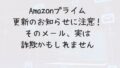 Amazonプライム
更新のお知らせに注意！
そのメール、実は
詐欺かもしれません